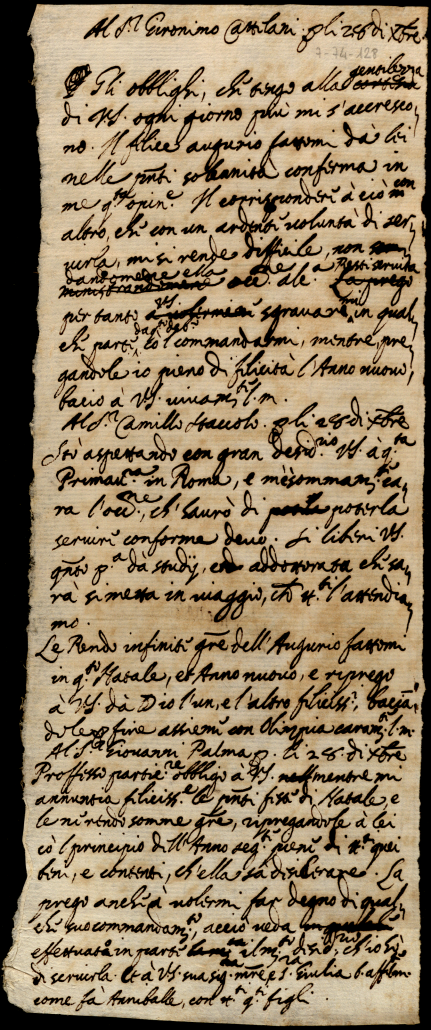 Al Sr. Gironimo Cattilani. p li 28 di Xbre
7-74-128
Gli obblighi, che tengo alla gentilezza
di VS. ogni giorno più mi s'accresco,
no. Il felice augurio fattomi dà lei
nelle pnti solennità conferma in
me qta opine. Il corrisponder à ciò con
altro, che con un ardente voluntà di ser,
uirla, mi si rende difficile, non
dandomene ella occne ale. Resti seruita
per tanto VS. sgravare in qual,
che parte co'l commandarmi, mentre pre,
gandole io pieno di felicità l'Anno nuouo,
bacio à VS. viuamte l. m.
Al Sr. Camillo Staccoli. p li 28 di Xbre
Stò aspettando con gran desidrio VS. à qta
Primaura in Roma, e m'è sommamte ca,
ra l'occne, ch'haurò di poterla
seruire conforme deuo. Si liberi VS.
qnto pa da studij, addottorata che sa,
rà si metta in uiaggio, che tti l'attendia,
mo.
Le Rendo infinite gre dell'Augurio fattomi
in qto Natale, et Anno nuouo, e riprego
à VS. dà Dio l'un, e l'altro feliciss., bacian
dole p fine assieme con Olimpia caramte l. m.
Al Sr. Giouanni Palma p. li 28 di Xbre
Professo particre obbligo à VS. mentre mi
annuntia feliciss.e le pnti feste di Natale, e
le ne rendo somme gre, ripregandole à lei
co'l principio dell'Anno segte pieno di tti quei
beni, e contenti, ch'ella sà desiderare. La
prego anche à uolermi far degno di qual,
che suo commandamto, acciò ueda
effettuata in parte il mio desidrio, ch'io hò
di seruirla. Et à VS. sua sigra mre e sra Giulia b. affme
come fà Annibale, con tti qti figli.